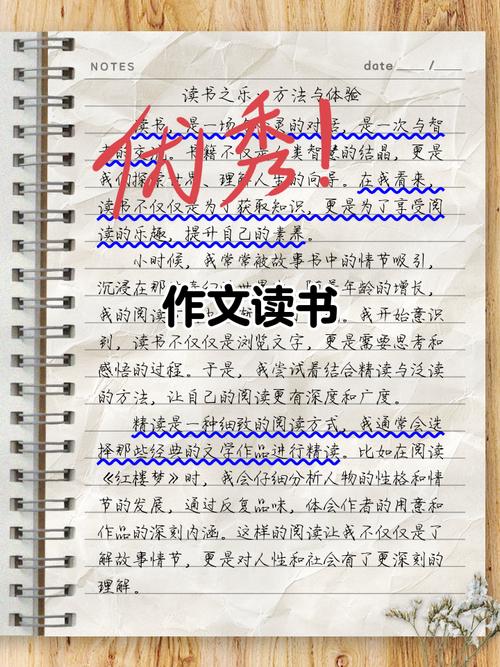 NOTES
date____/__
读书之乐 方法与体验
读书，是一场 灵的对 ，是一次与智
者的 。书籍不仅是 类智 的结晶，更是
我们探索 界、理解人 的向导。在我看来，
读书不仅仅是为了获取知识，更是为了享受阅
读的乐趣，提升自己的素养。
优秀！
小时候，我常常被故事书中的情节吸引，
沉浸在那 年龄的增长，
作文读书
我的阅读 。我开始意识
到，读书不仅仅是浏览文字，更是需要思考和
感悟的过程。于是，我尝试着结合精读与泛读
的方法，让自己的阅读更有深度和广度。
精读是一种细致的阅读方式，我通常会选
择那些经典的文学作品进行精读。比如在阅读
《红楼梦》时，我会仔细分析人物的性格和情
节的发展，通过反复品味，体会作者的用意和
作品的深刻内涵。这样的阅读让我不仅仅是了
解故事情节，更是对人性和社会有了更深刻的
理解。